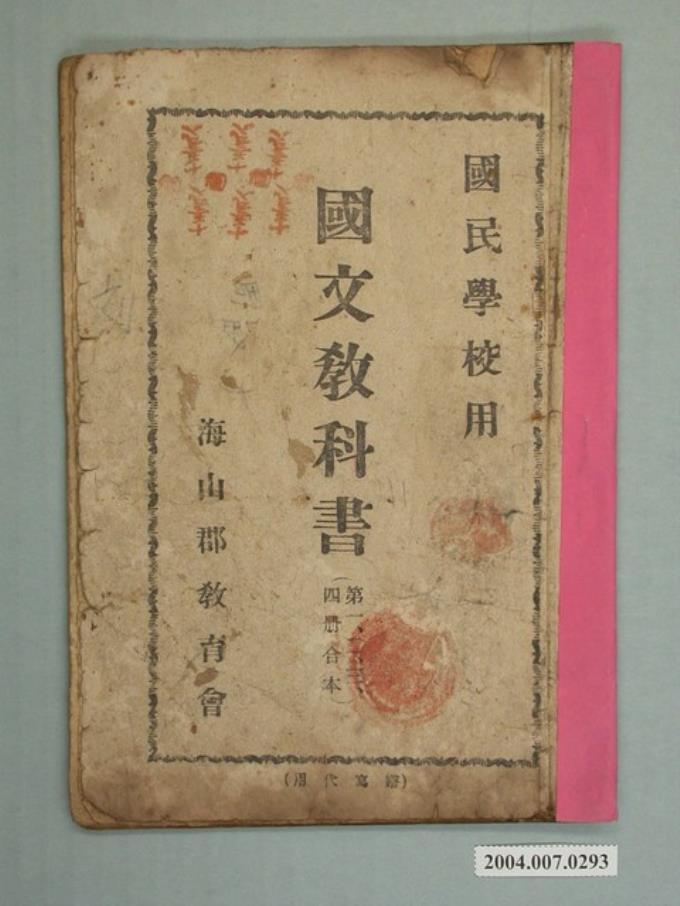 國民學校用
國文教科書
(第一、二、三、
四册合本)
海山郡教育會
(謄寫代用)
2004.007.0293